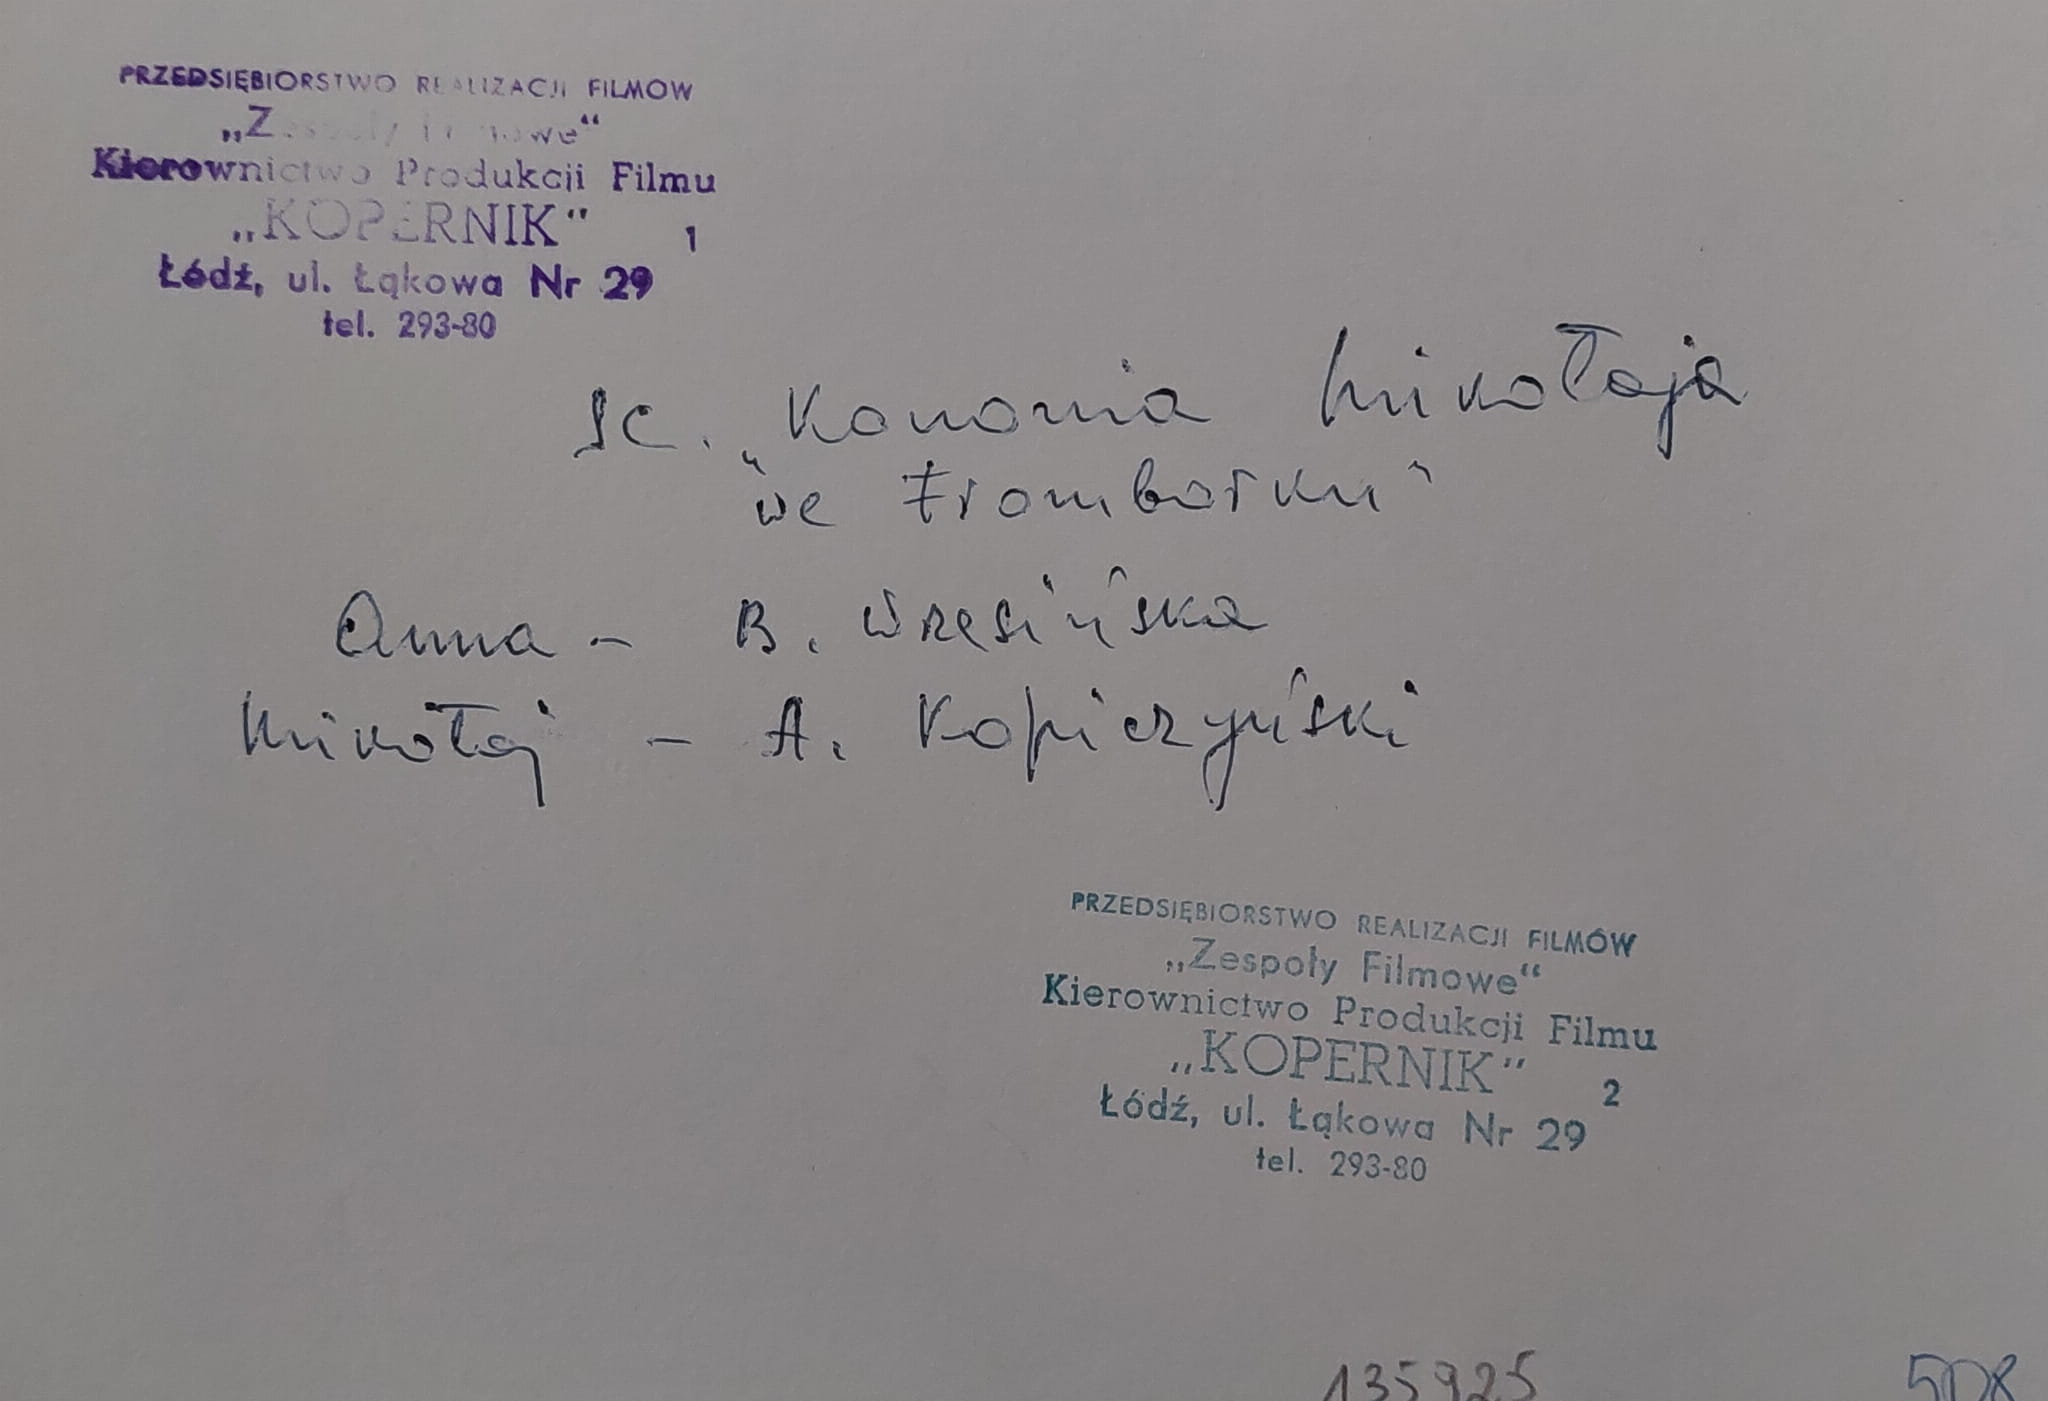 PRZEDSIĘBIORSTWO REALIZACJI FILMOW
„Zespoły Filmowe“
Kierownictwo Produkcji Filmu
„KOPERNIK“ 1
Łódź, ul. Łąkowa Nr 29
tel. 293-80
Sc. „Kanonia Mikołaja
we Fromborku”
Anna – B. Wrzesińska
Mikołaj – A. Kopiczyński
PRZEDSIĘBIORSTWO REALIZACJI FILMÓW
„Zespoły Filmowe“
Kierownictwo Produkcji Filmu
„KOPERNIK“ 2
Łódź, ul. Łąkowa Nr 29
tel. 293-80
135925
508